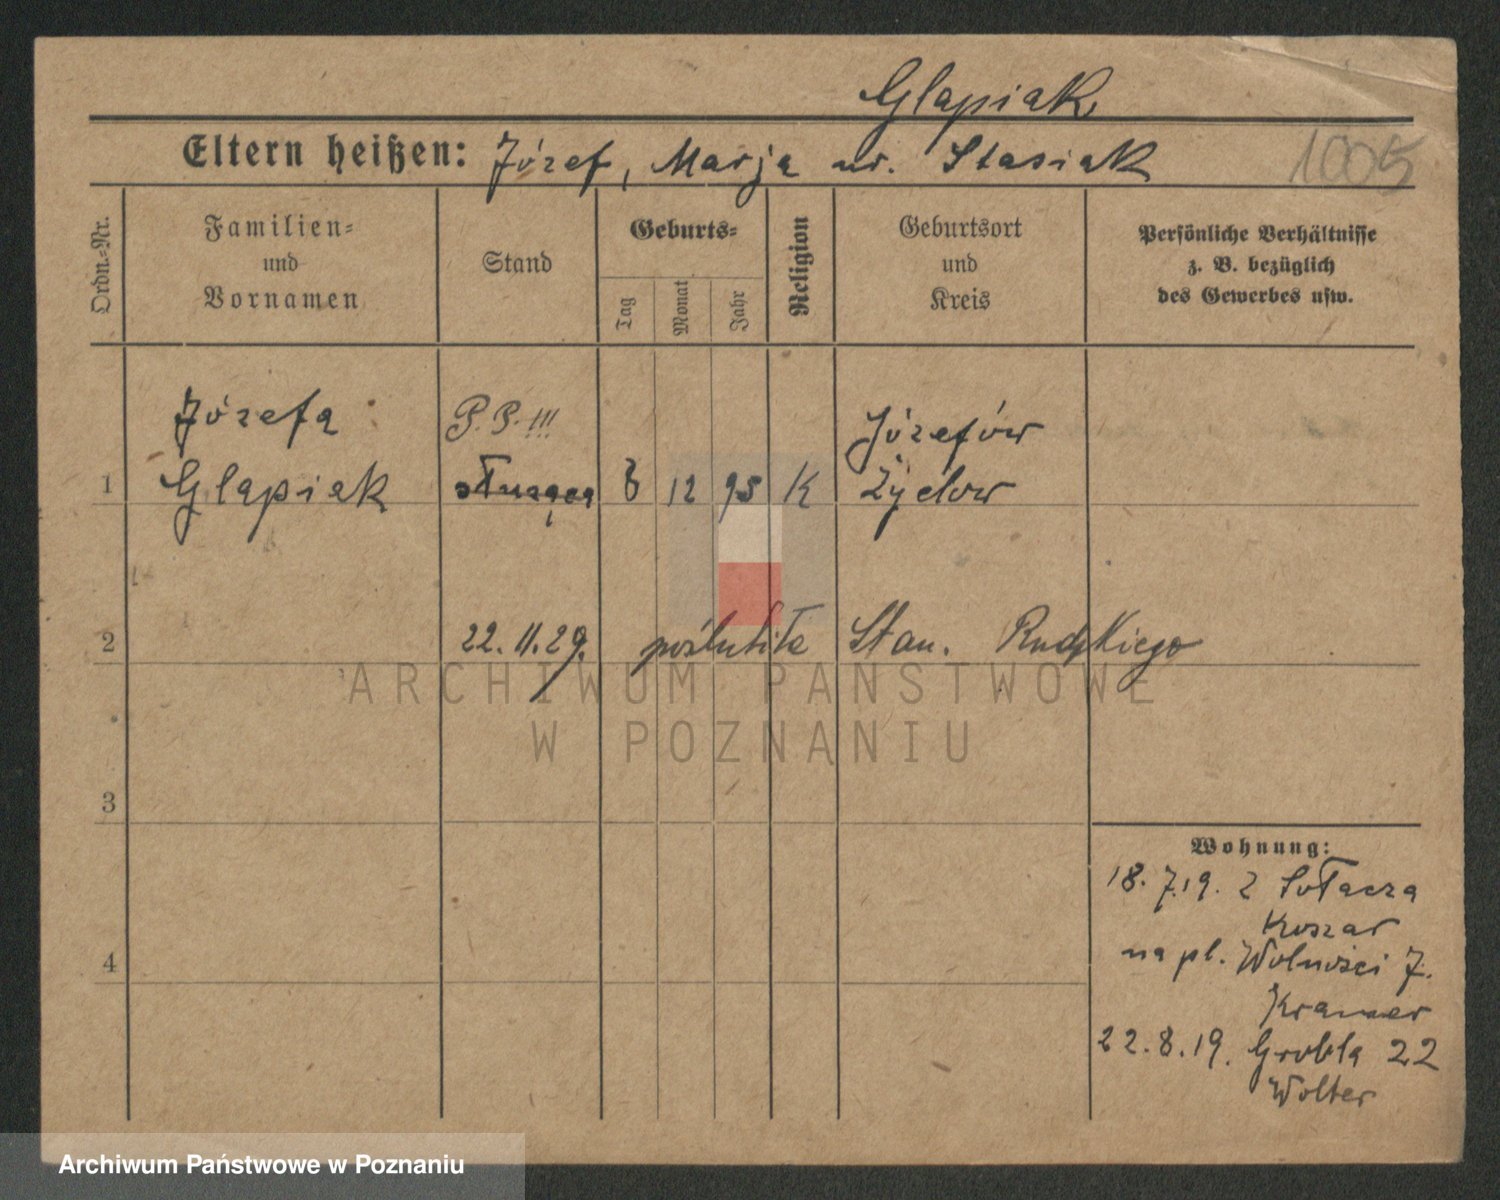 Glapiak
Eltern heißen: Józef, Marja ur. Stasiak
1005
Ordn.-Nr.
Familien-
und
Vornamen
Stand
Geburts-
Tag
Monat
Jahr
Religion
Geburtsort
und
Kreis
Persönliche Verhältnisse
z. B. bezüglich
des Gewerbes usw.
Józefa P. P. !!! Józefów
1 Glapiak służąca 3 12 95 K
2 22.11.29. poślubiła Stan. Rudzkiego
ARCHIWUM PAŃSTWOWE
W POZNANIU
3
4
Wohnung:
18.7.19. z Sołacza
Koszar
na pl. Wolności 7.
Kramer
22.8.19. Grobla 22
Wolter
Archiwum Państwowe w Poznaniu